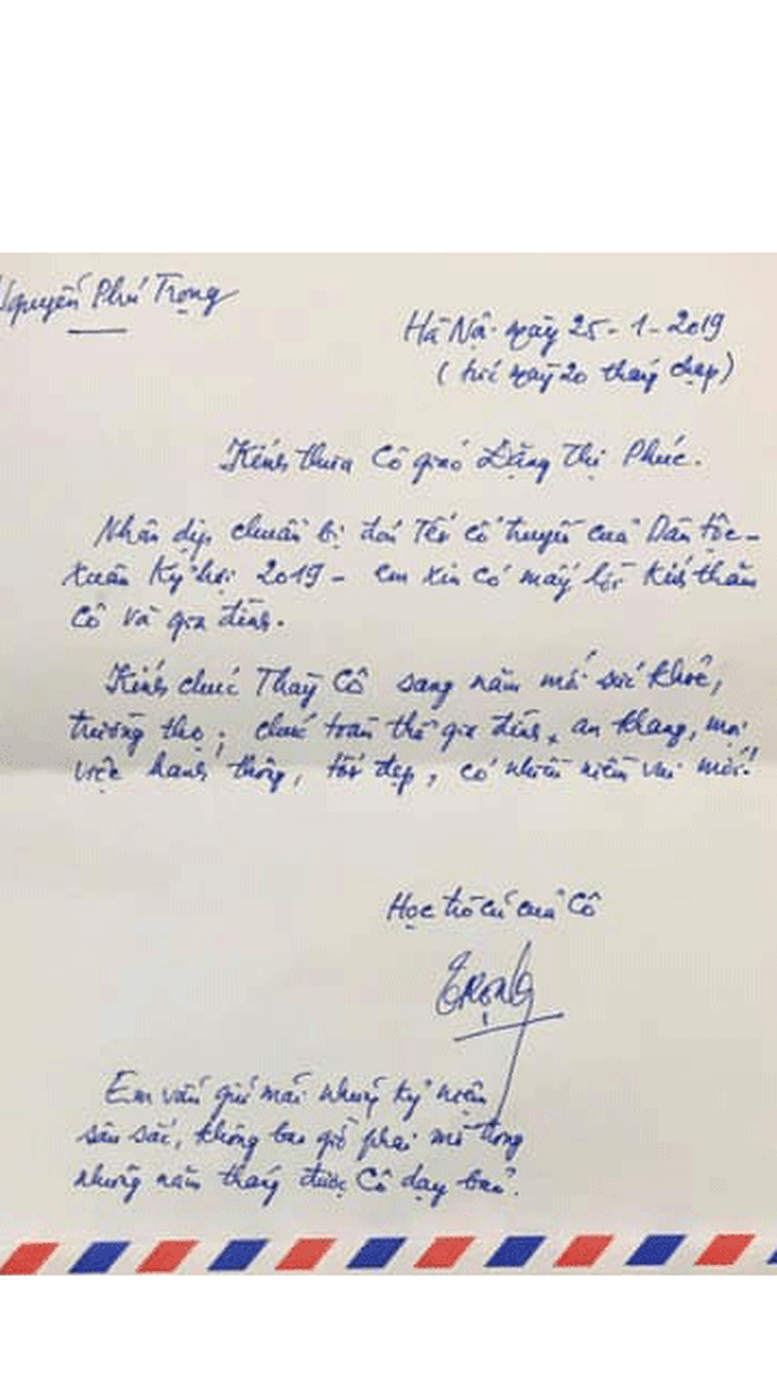 Nguyễn Phú Trọng
Hà Nội ngày 25-1-2019
(tức ngày 20 tháng chạp)
Kính thưa Cô giáo Đặng Thị Phúc.
Nhân dịp chuẩn bị đón Tết cổ truyền của Dân tộc -
Xuân Kỷ hợi 2019 - em xin có mấy lời kính thăm
Cô và gia đình.
Kính chúc Thầy Cô sang năm mới sức khỏe,
trường thọ; chúc toàn thể gia đình, an khang, mọi
việc hanh thông, tốt đẹp, có nhiều niềm vui mới!
Học trò cũ của Cô
Trọng
Em vẫn giữ mãi những kỷ niệm
sâu sắc, không bao giờ phai mờ trong
những năm tháng được Cô dạy bảo.